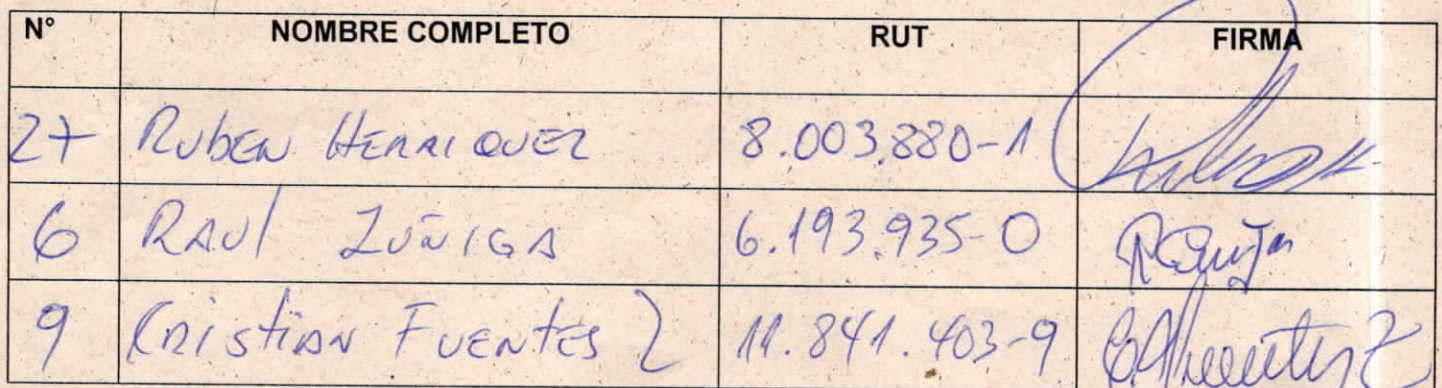 N° NOMBRE COMPLETO RUT FIRMA
27 RUBEN HENRIQUEZ 8.003.880-1
6 RAUl ZÚÑIGA 6.193.935-0
9 CRistiAN FUENtES Z 11.841.403-9